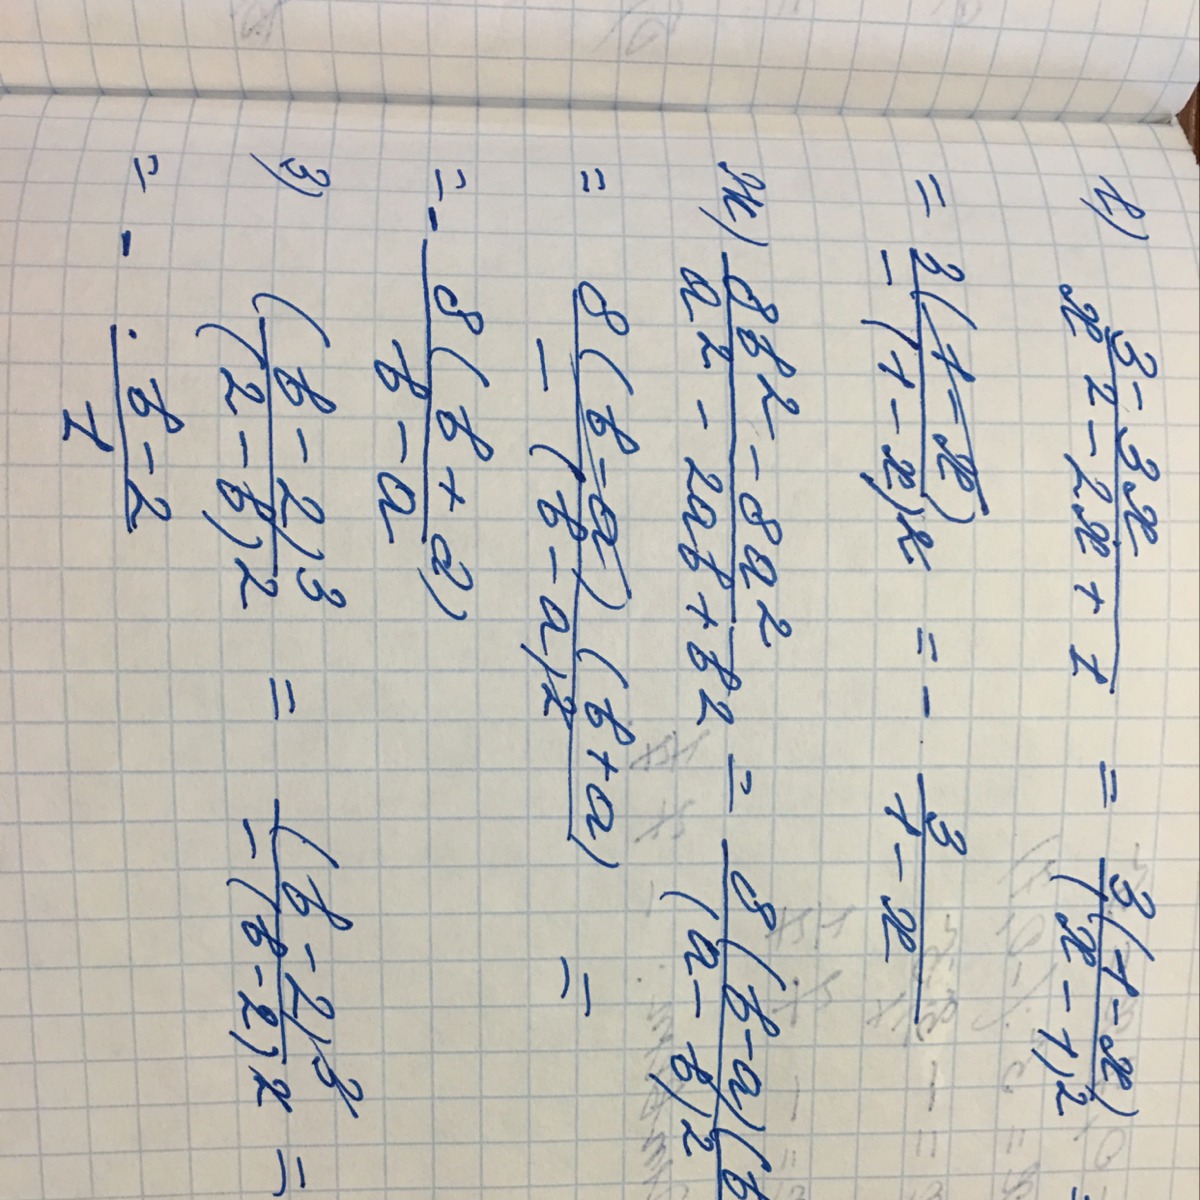 е) (3-3x)/(x²-2x+1) = 3(1-x)/(x-1)² =
= 3(1-x)/-(1-x)² = - 3/(1-x)
ж) (8b²-8a²)/(a²-2ab+b²) = 8(b-a)(b/(a-b)²
= 8(b-a)(b+a)/-(b-a)² =
= - 8(b+a)/(b-a)
з) (b-2)³/(2-b)² = (b-2)³/-(b-2)² =
= - (b-2)/1